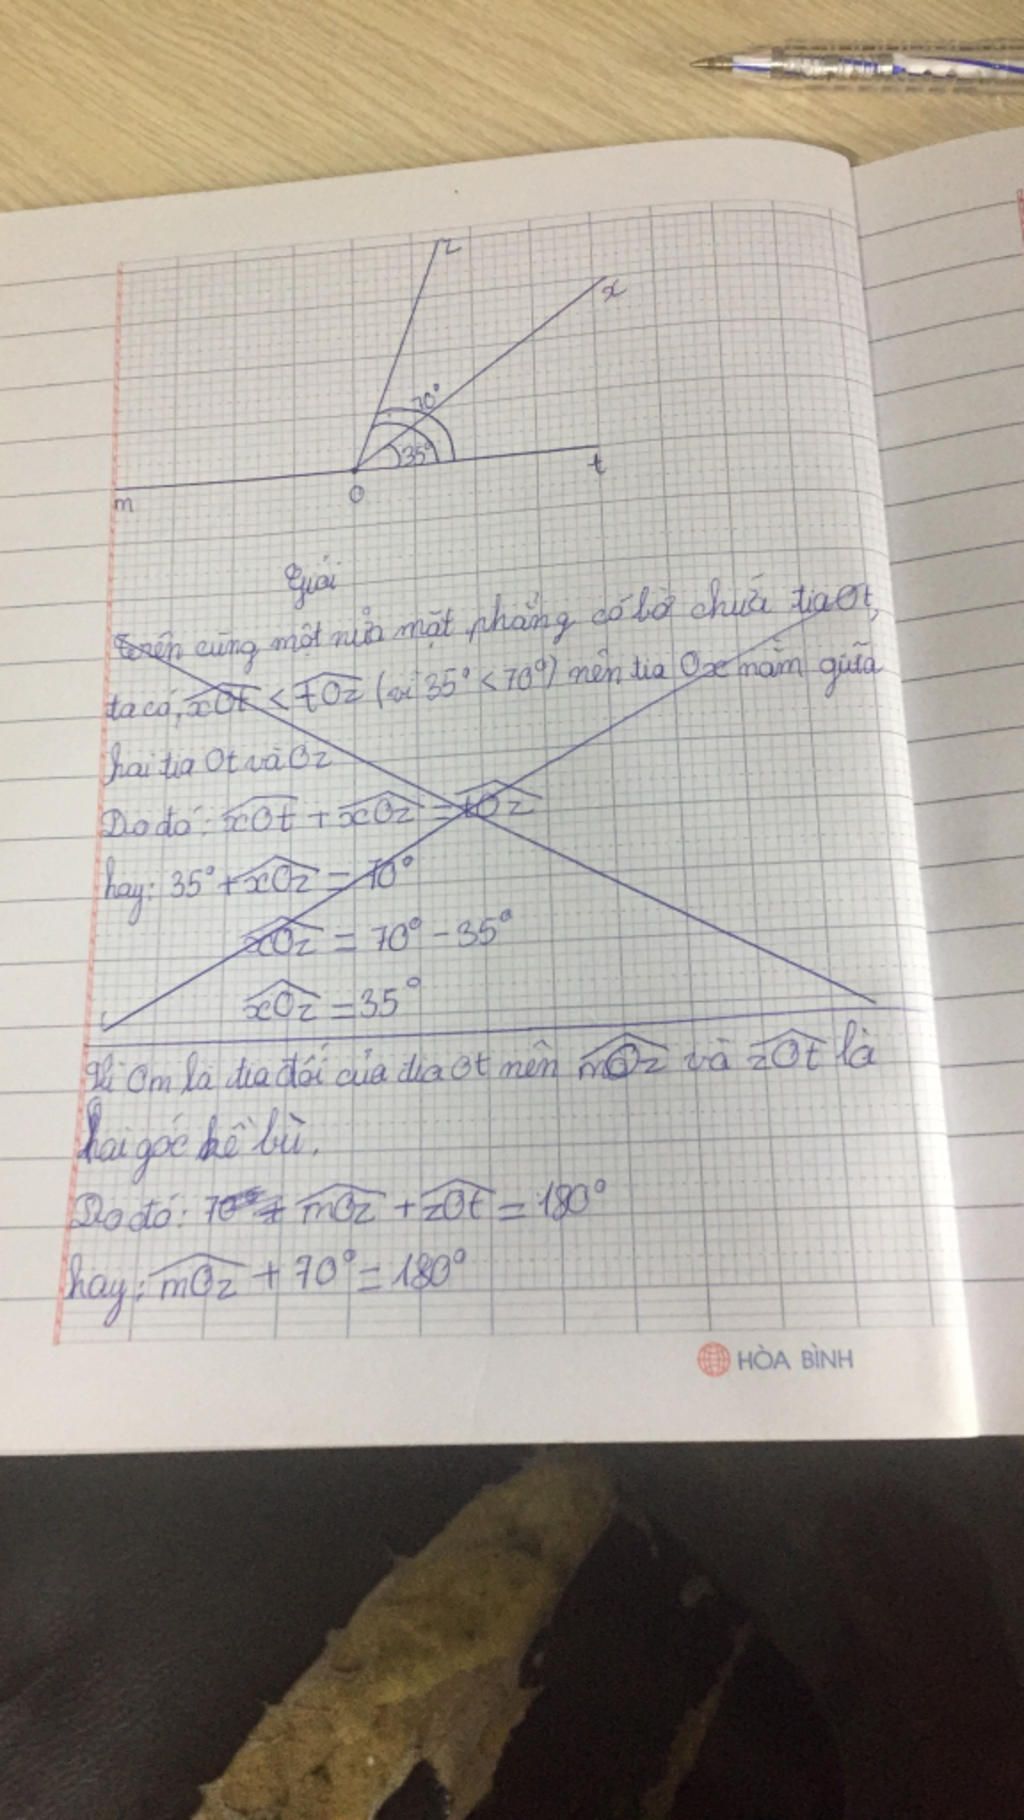 z
x
70°
35°
t
m
O
Giải
Trên cùng một nửa mặt phẳng có bờ chứa tia Ot,
ta có, xOt < tOz (vì 35° < 70°) nên tia Ox nằm giữa
hai tia Ot và Oz
Do đó: xOt + xOz = tOz
hay: 35° + xOz = 70°
xOz = 70° - 35°
xOz = 35°
Vì Om là tia đối của tia Ot nên mOz và zOt là
hai góc kề bù.
Do đó: mOz + zOt = 180°
hay: mOz + 70° = 180°
HÒA BÌNH